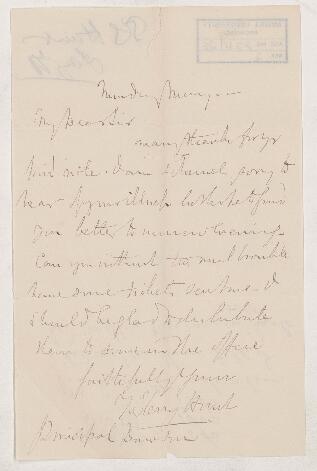 Monday Morning
My Dear Sir
many thanks for yr
kind note. I am extremely sorry to
hear of your illness but hope to find
you better tomorrow evening.
Can you without too much trouble
have some tickets sent me. I
should be glad to distribute
them to some in the office
faithfully yours
Henry Hunt
Principal Dawson